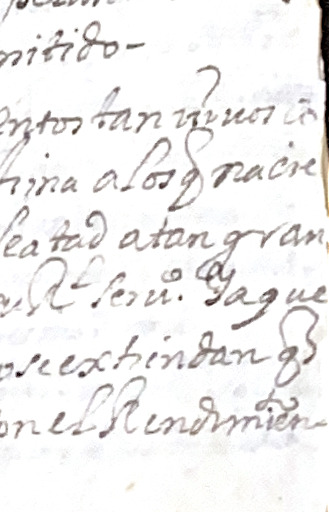 mitido-
entos tan vivos
tina a los q nacie
leatad a tan gran
Rl serv.o Ya que
o se extiendan
on el Rendimien-to